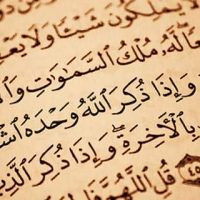 لَا يَمْلِكُونَ شَيْـًٔا وَلَا يَعْ
لَّهُۥ مُلْكُ ٱلسَّمَٰوَٰتِ وَٱلْ
وَإِذَا ذُكِرَ ٱللَّهُ وَحْدَهُ ٱشْ
بِٱلْءَاخِرَةِ ۖ وَإِذَا ذُكِرَ ٱلَّذِي
٤٥ قُلِ ٱللَّهُمَّ فَا